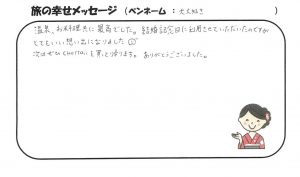 旅の幸せメッセージ（ペンネーム：犬大好き）
温泉、お料理共に最高でした。結婚記念日に利用させていただいたのですが
とてもいい思い出になりました
次はぜひ を 帰ります。ありがとうございました。